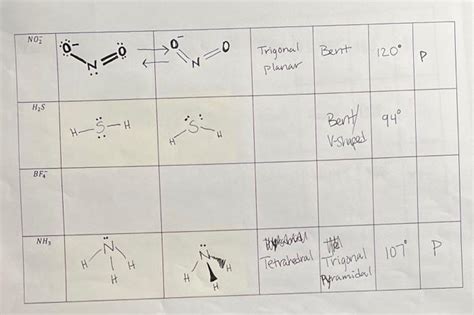 NO₂⁻
O⁻ N O
O⁻ N O
Trigonal
planar
Bent
120°
P
H₂S
H-S-H
H S H
Bent/
V-shaped
94°
BF₄⁻
NH₃
N
H H H
N
H H H
Tetrahedral
Trigonal
Pyramidal
107°
P